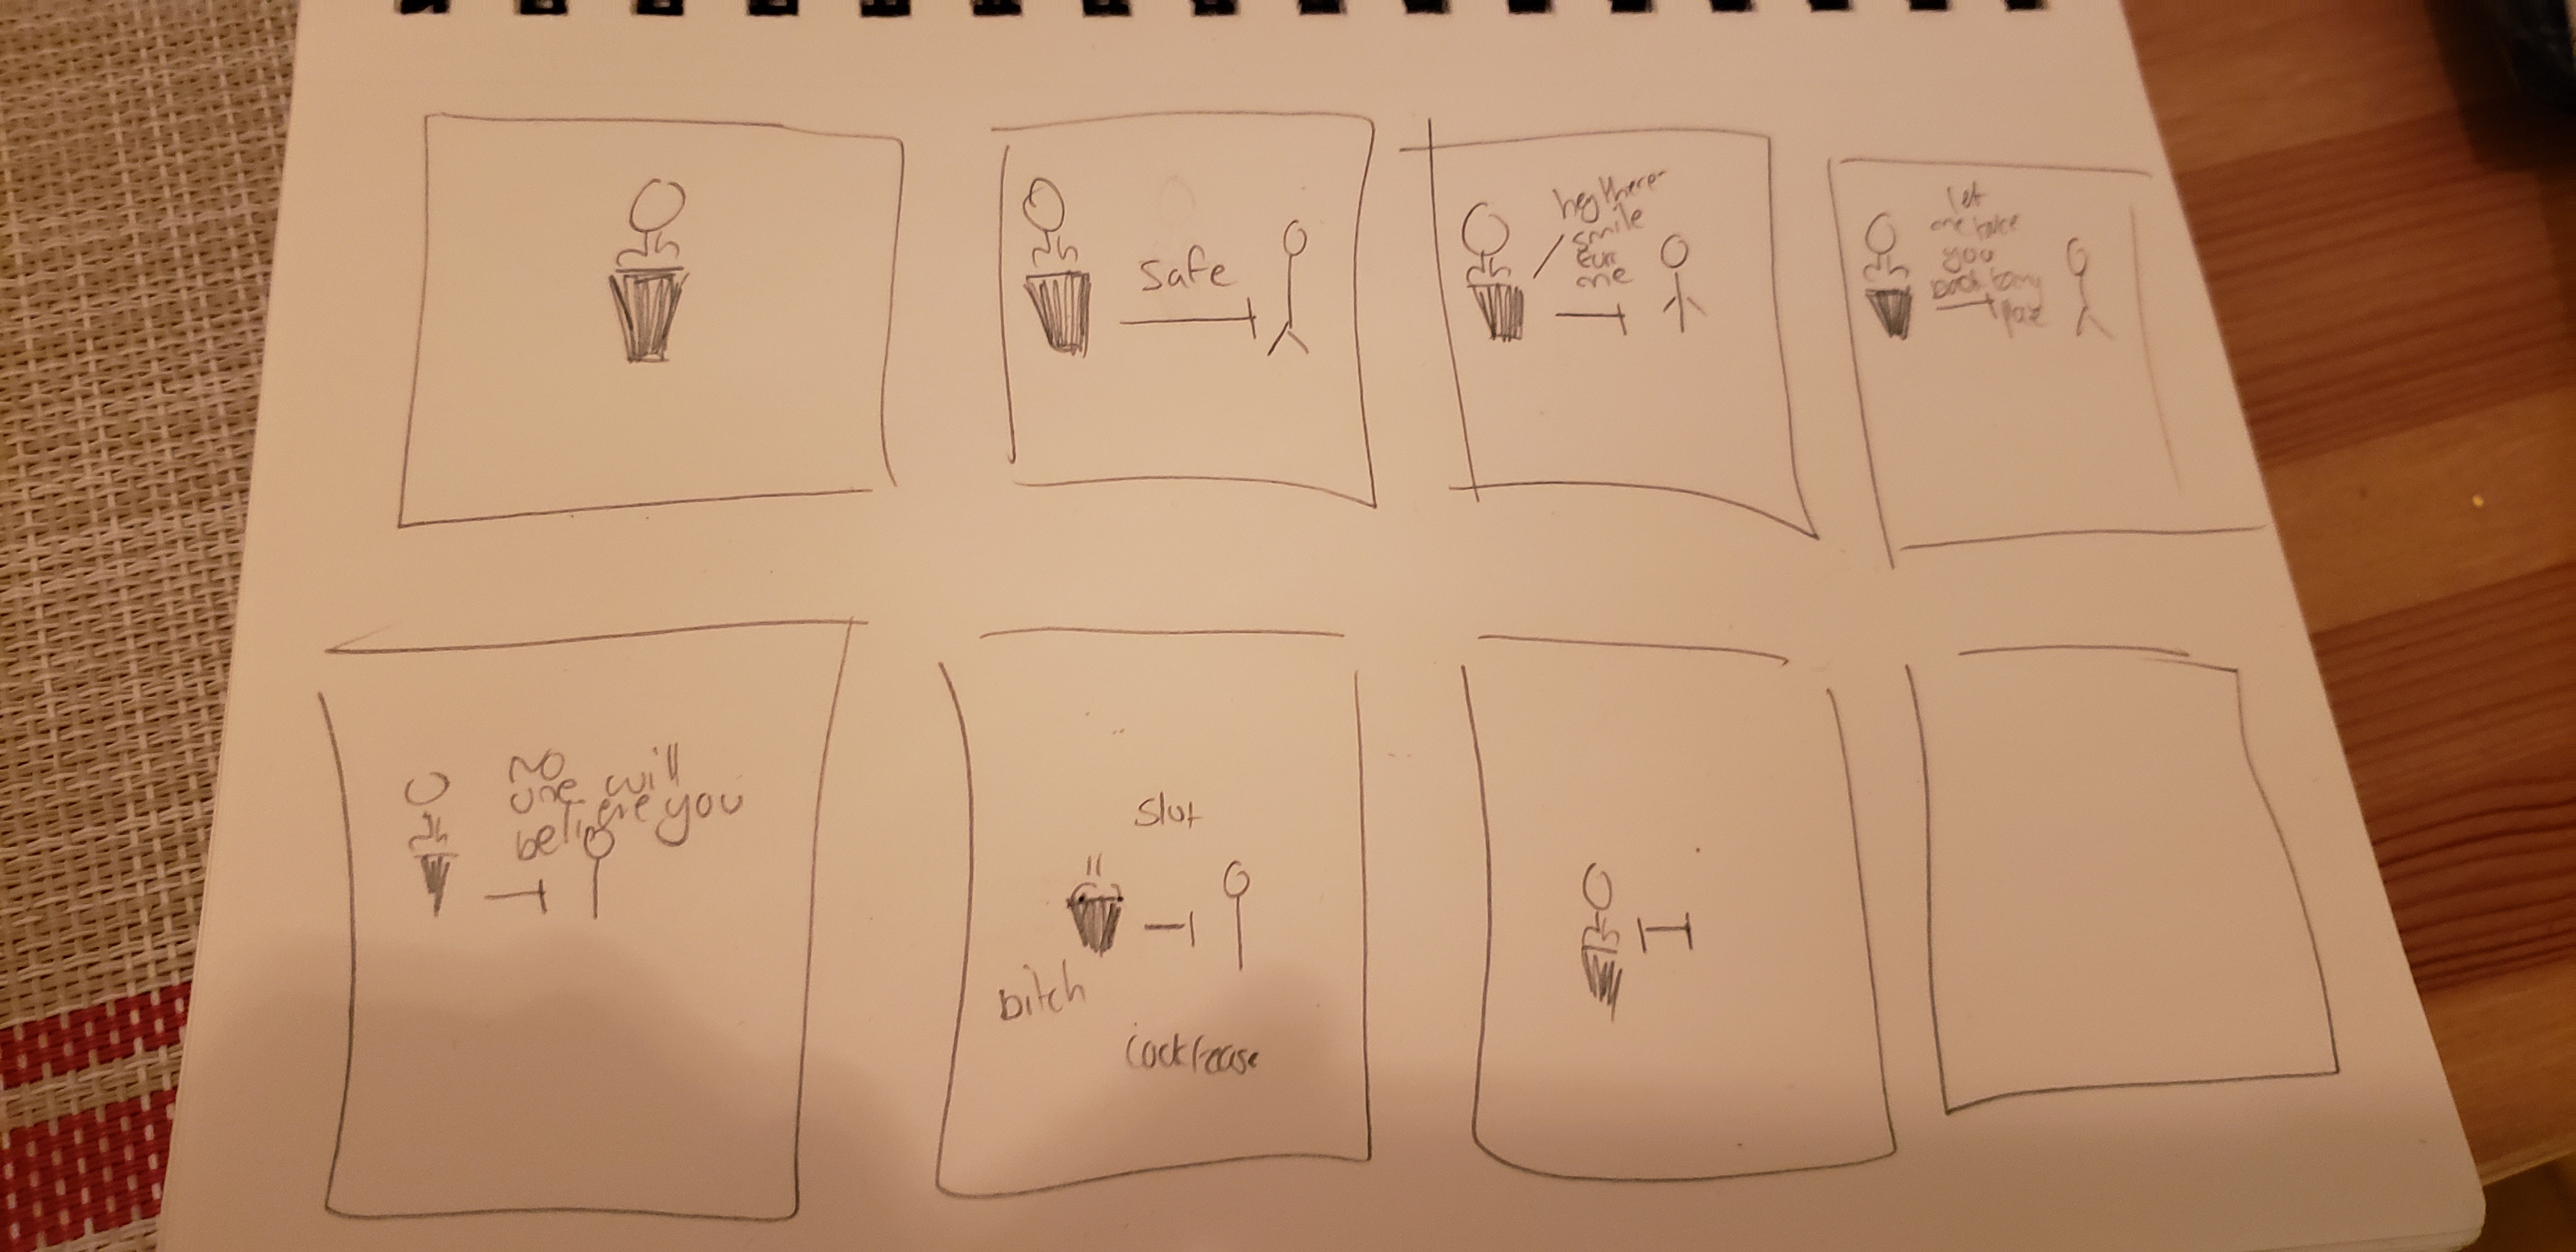 safe
hey there
smile
for
me
let
me take
you
back to my
no
one will
believe you
slut
bitch
cocktease